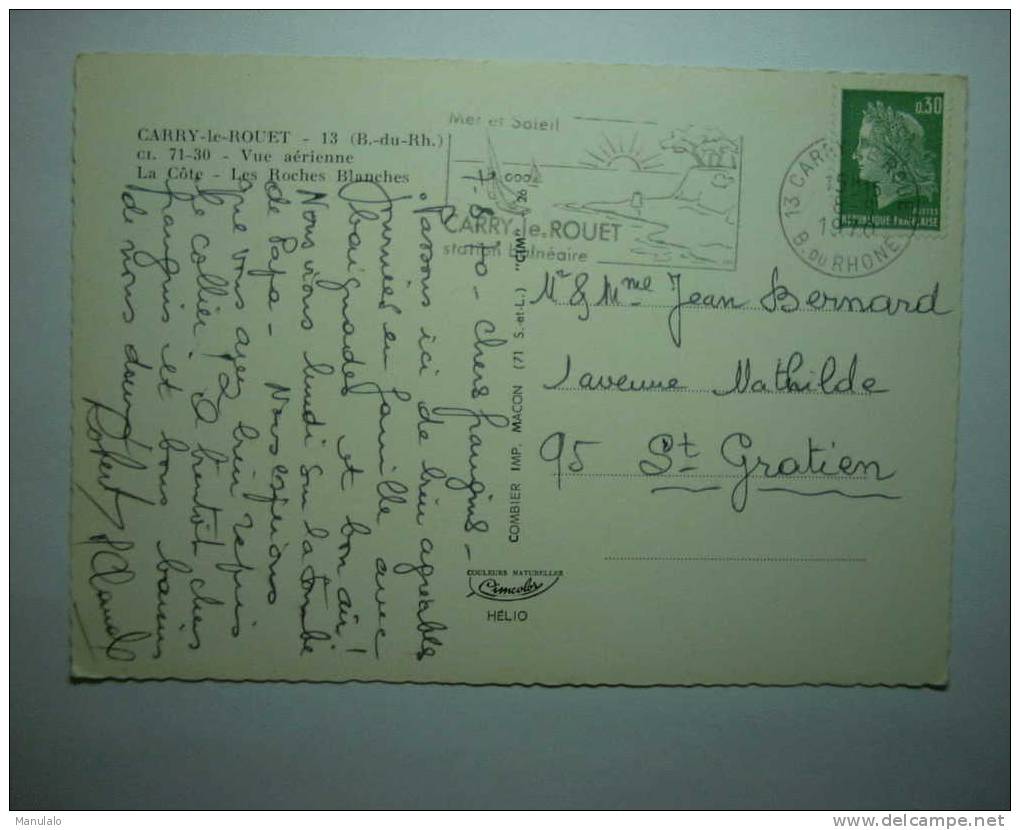 CARRY-le-ROUET - 13 (B.-du-Rh.)
CI. 71-30 - Vue aérienne
La Côte - Les Roches Blanches
Mer et Soleil
CARRY-le-ROUET
station balnéaire
0,30
REPUBLIQUE FRANÇAISE
13 CARRY LE ROUET
1970
B. DU RHONE
7-8-70 - Chers frangins -
Passons ici de bien agréables
journées en famille avec
baignades et bon air!
Nous irons lundi sur la tombe
de Papa - Nous espérons
que vous avez bien repris
le collier! A bientôt chers
frangins et bons baisers
de nous deux
Robert
COMBIER IMP. MACON (71 S.-et-L.) "CIM" 26
COULEURS NATURELLES
Cimcolor
HÉLIO
Mr & Mme Jean Bernard
1 avenue Mathilde
95 St Gratien
Manulalo
www.delcampe.net